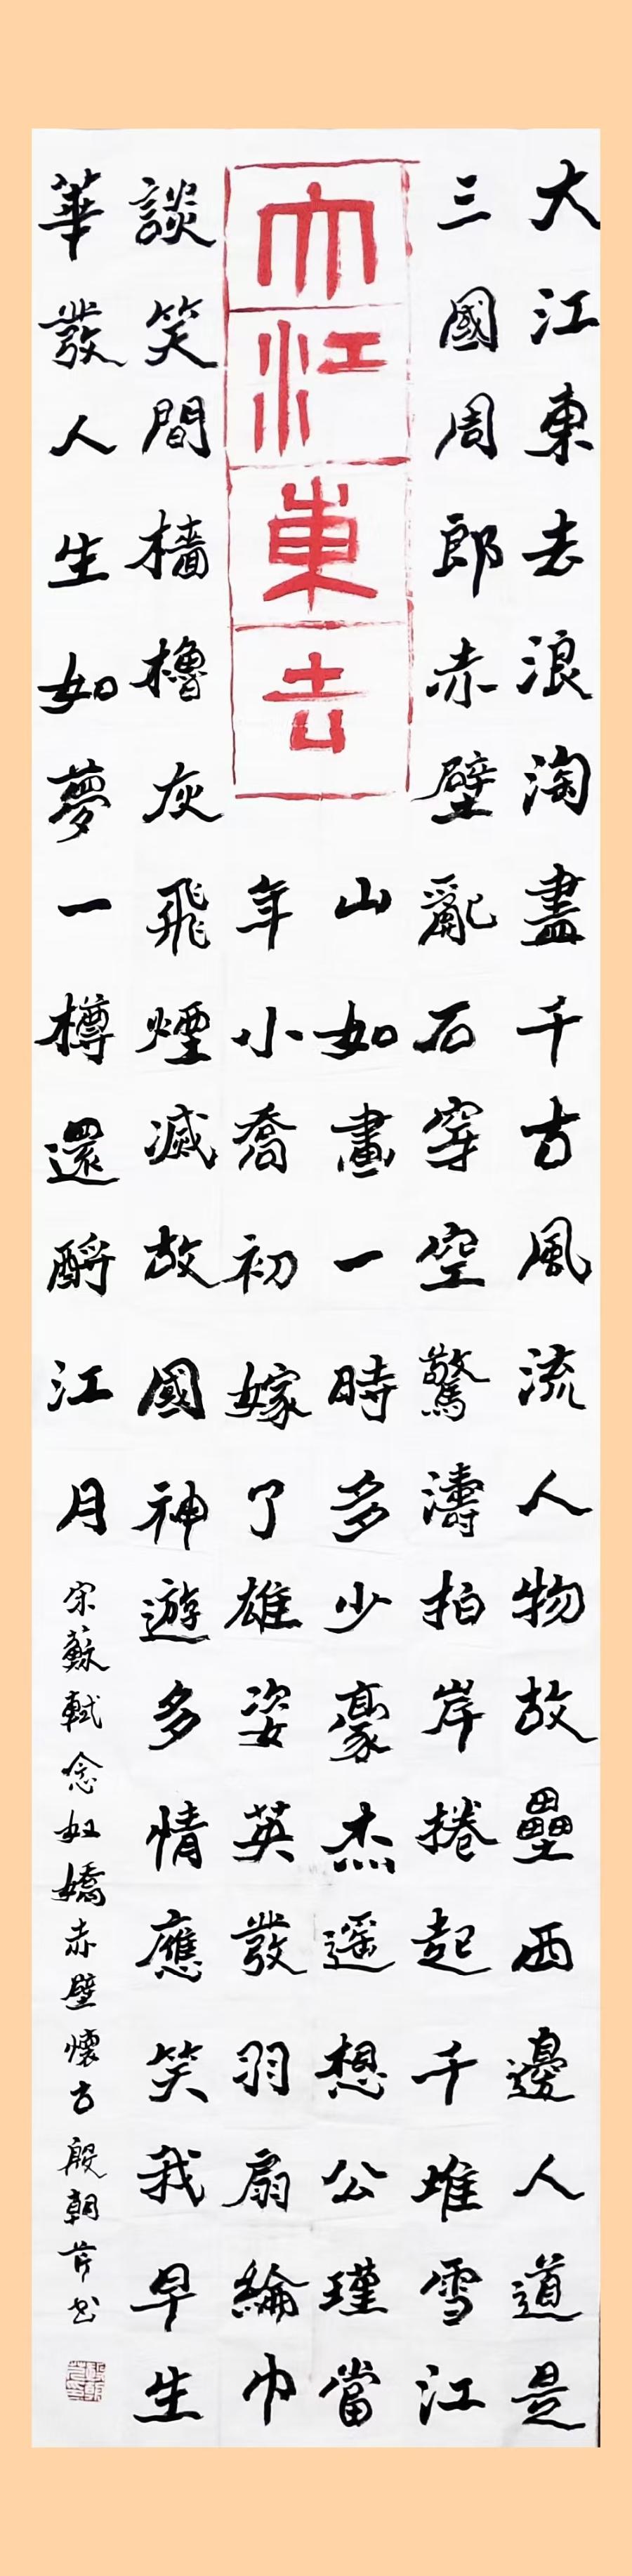 大江東去浪淘盡千古風流人物故壘西邊人道是
三國周郎赤壁亂石穿空驚濤拍岸捲起千堆雪江
大江東去
山如畫一時多少豪杰遥想公瑾當
年小喬初嫁了雄姿英發羽扇綸巾
談笑間檣櫓灰飛煙滅故國神遊多情應笑我早生
華發人生如夢一樽還酹江月
宋蘇軾念奴嬌赤壁懷古殷朝芹书